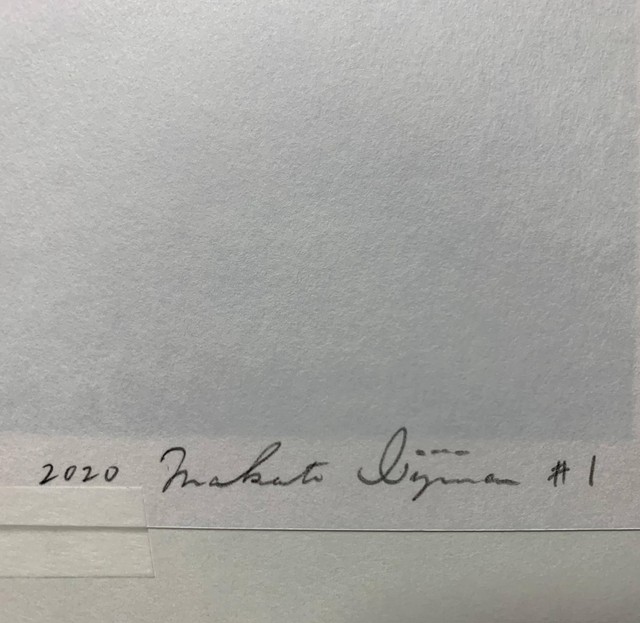 2020 Makoto Iijima #1